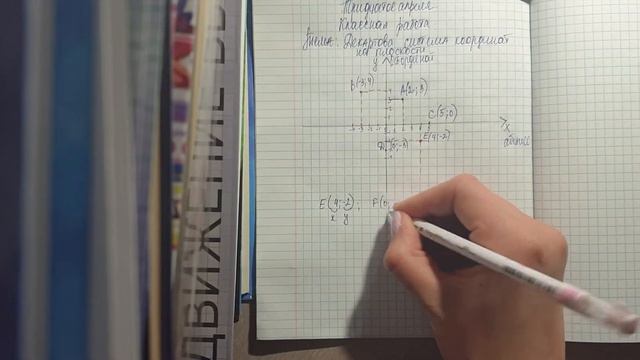 Тридцатое апреля
Классная работа
Тема: Декартова система координат
на плоскости
y ординат
B(-3;4)
A(2;3)
C(5;0)
x
абсцисс
E(4;-2)
E(4;-2); F(0;
x y
ДВИЖЕНИЕ В